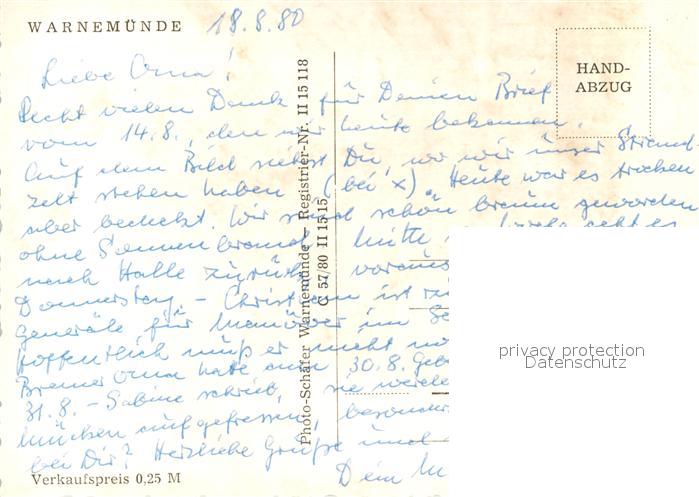 WARNEMÜNDE
18.8.80
HAND-
ABZUG
Liebe Oma!
Recht vielen Dank für Deinen Brief
vom 14.8., den wir heute bekamen.
Auf dem Bild siehst Du, wo wir unser Strand-
zelt stehen haben (bei x). Heute war es trocken
aber bedeckt. Wir sind schön braun geworden
ohne Sonnenbrand. Mitte geht es
nach Halle zurück, voraus
Donnerstag. – Christian ist
für Manöver im
Hoffentlich muß er nicht
Bremer Oma hat am 30.8. Geb
31.8. – Sabine schrieb, sie werde
Mücken aufgefressen, besonder
bei Dir? Herzliche Grüße und
Dein
Photo-Schäfer Warnemünde – Registrier-Nr. II 15 118
C 57/80 II 15 15
Verkaufspreis 0,25 M
privacy protection
Datenschutz